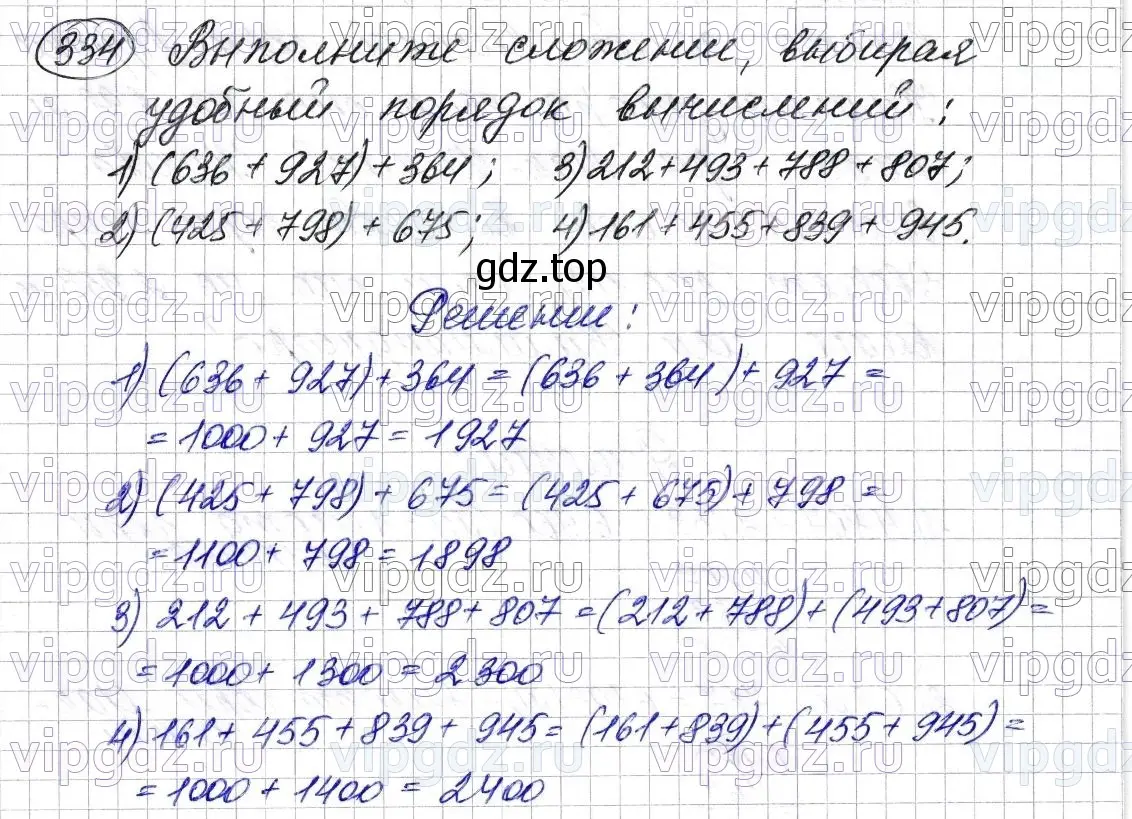 334 Выполните сложение, выбирая
удобный порядок вычислений:
1) (636 + 927) + 364; 3) 212 + 493 + 788 + 807;
2) (425 + 798) + 675; 4) 161 + 455 + 839 + 945.
gdz.top
Решение:
1) (636 + 927) + 364 = (636 + 364) + 927 =
= 1000 + 927 = 1927
2) (425 + 798) + 675 = (425 + 675) + 798 =
= 1100 + 798 = 1898
3) 212 + 493 + 788 + 807 = (212 + 788) + (493 + 807) =
= 1000 + 1300 = 2300
4) 161 + 455 + 839 + 945 = (161 + 839) + (455 + 945) =
= 1000 + 1400 = 2400
vipgdz.ru